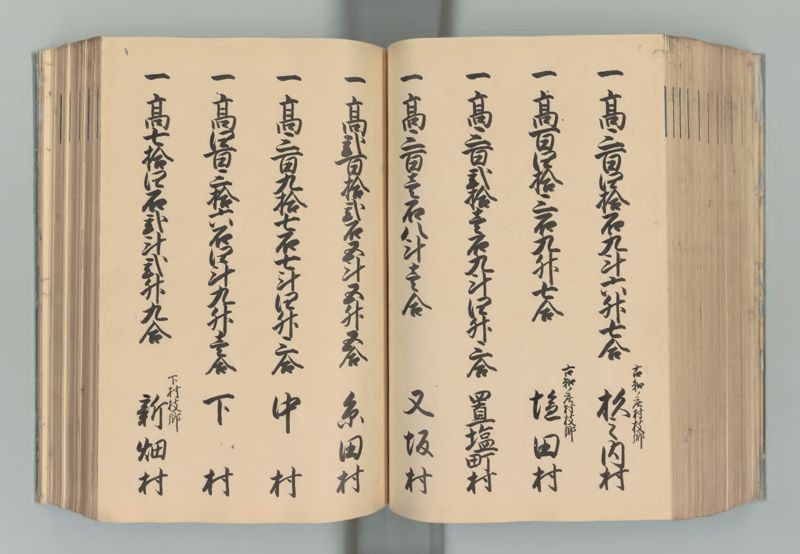 一高三百四拾石九斗六升七合
古知ノ庄村枝郷
杦之内村
一高百四拾三石九升七合
古知ノ庄村枝郷
塩田村
一高三百弐拾壱石九斗四升三合 置塩町村
一高三百壱石八斗壱合 又坂村
一高弐百拾弐石五斗五升五合 糸田村
一高三百九拾七石七斗四升三合 中村
一高四百三拾六石四斗九升壱合 下村
一高七拾四石弐斗弐升九合
下村枝郷
新畑村